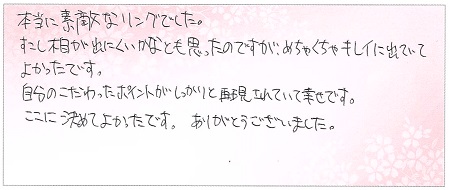 本当に素敵なリングでした。
すこし木目が出にくいかなとも思ったのですが、めちゃくちゃキレイに出ていて
よかったです。
自分のこだわったポイントがしっかりと再現されていて幸せです。
ここに決めてよかったです。 ありがとうございました。